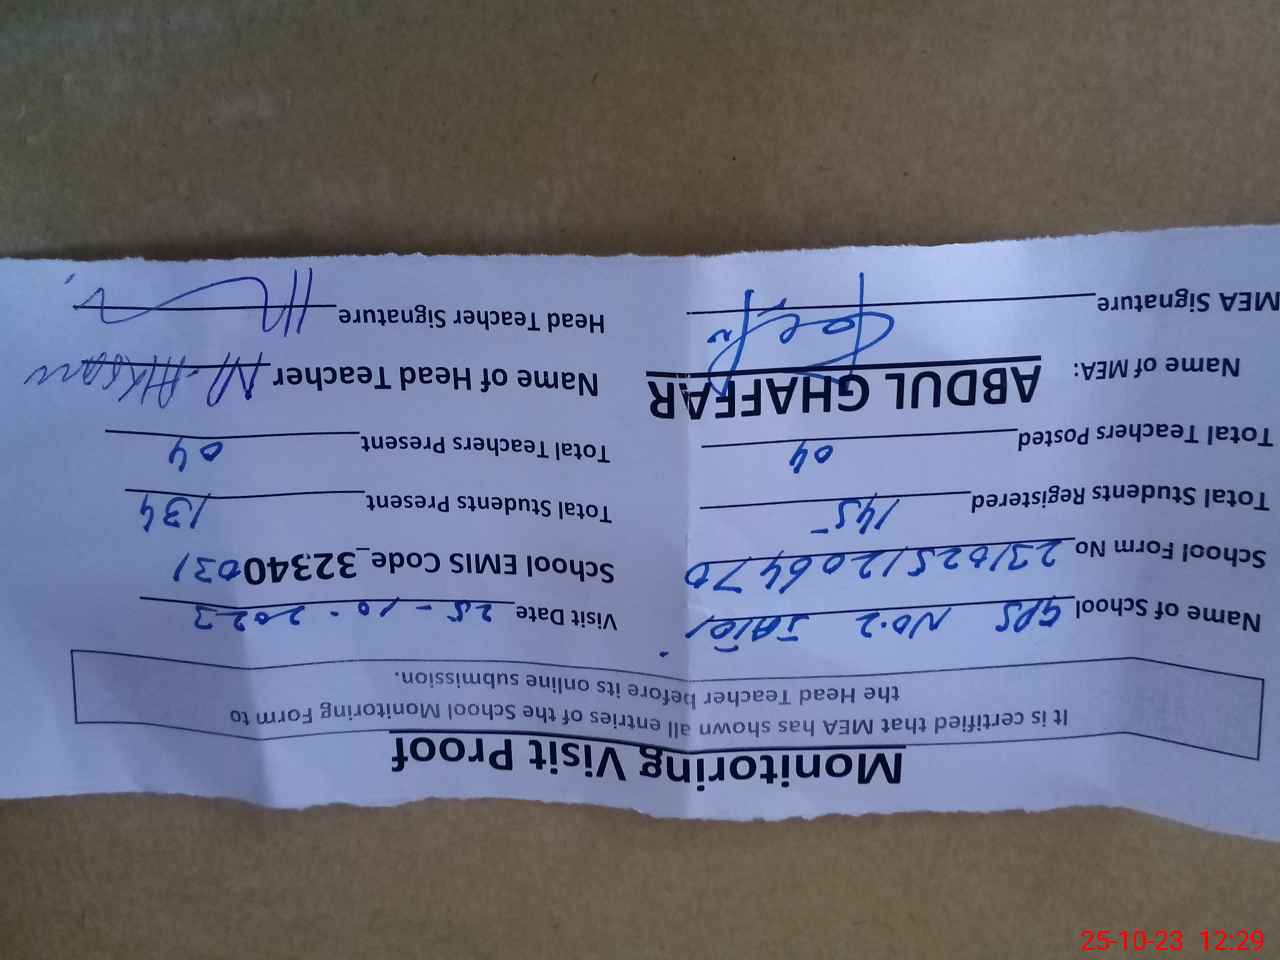 Monitoring Visit Proof
It is certified that MEA has shown all entries of the School Monitoring Form to
the Head Teacher before its online submission.
Name of School GPS NO.2 Visit Date 25-10-2023
School Form No 2310251206470 School EMIS Code_32340031
Total Students Registered 145 Total Students Present 134
Total Teachers Posted 04 Total Teachers Present 04
Name of MEA: ABDUL GHAFFAR Name of Head Teacher
MEA Signature Head Teacher Signature
25-10-23 12:29